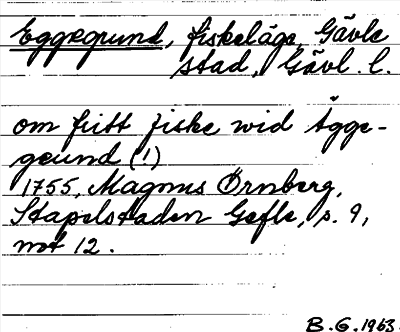 Eggegrund, fiskeläge, Gävle
stad, Gävl. l.
om fritt fiske wid Ägge-
grund (!)
1755, Magnus Örnberg,
Stapelstaden Gefle, s. 9,
not 12.
B.G. 1963